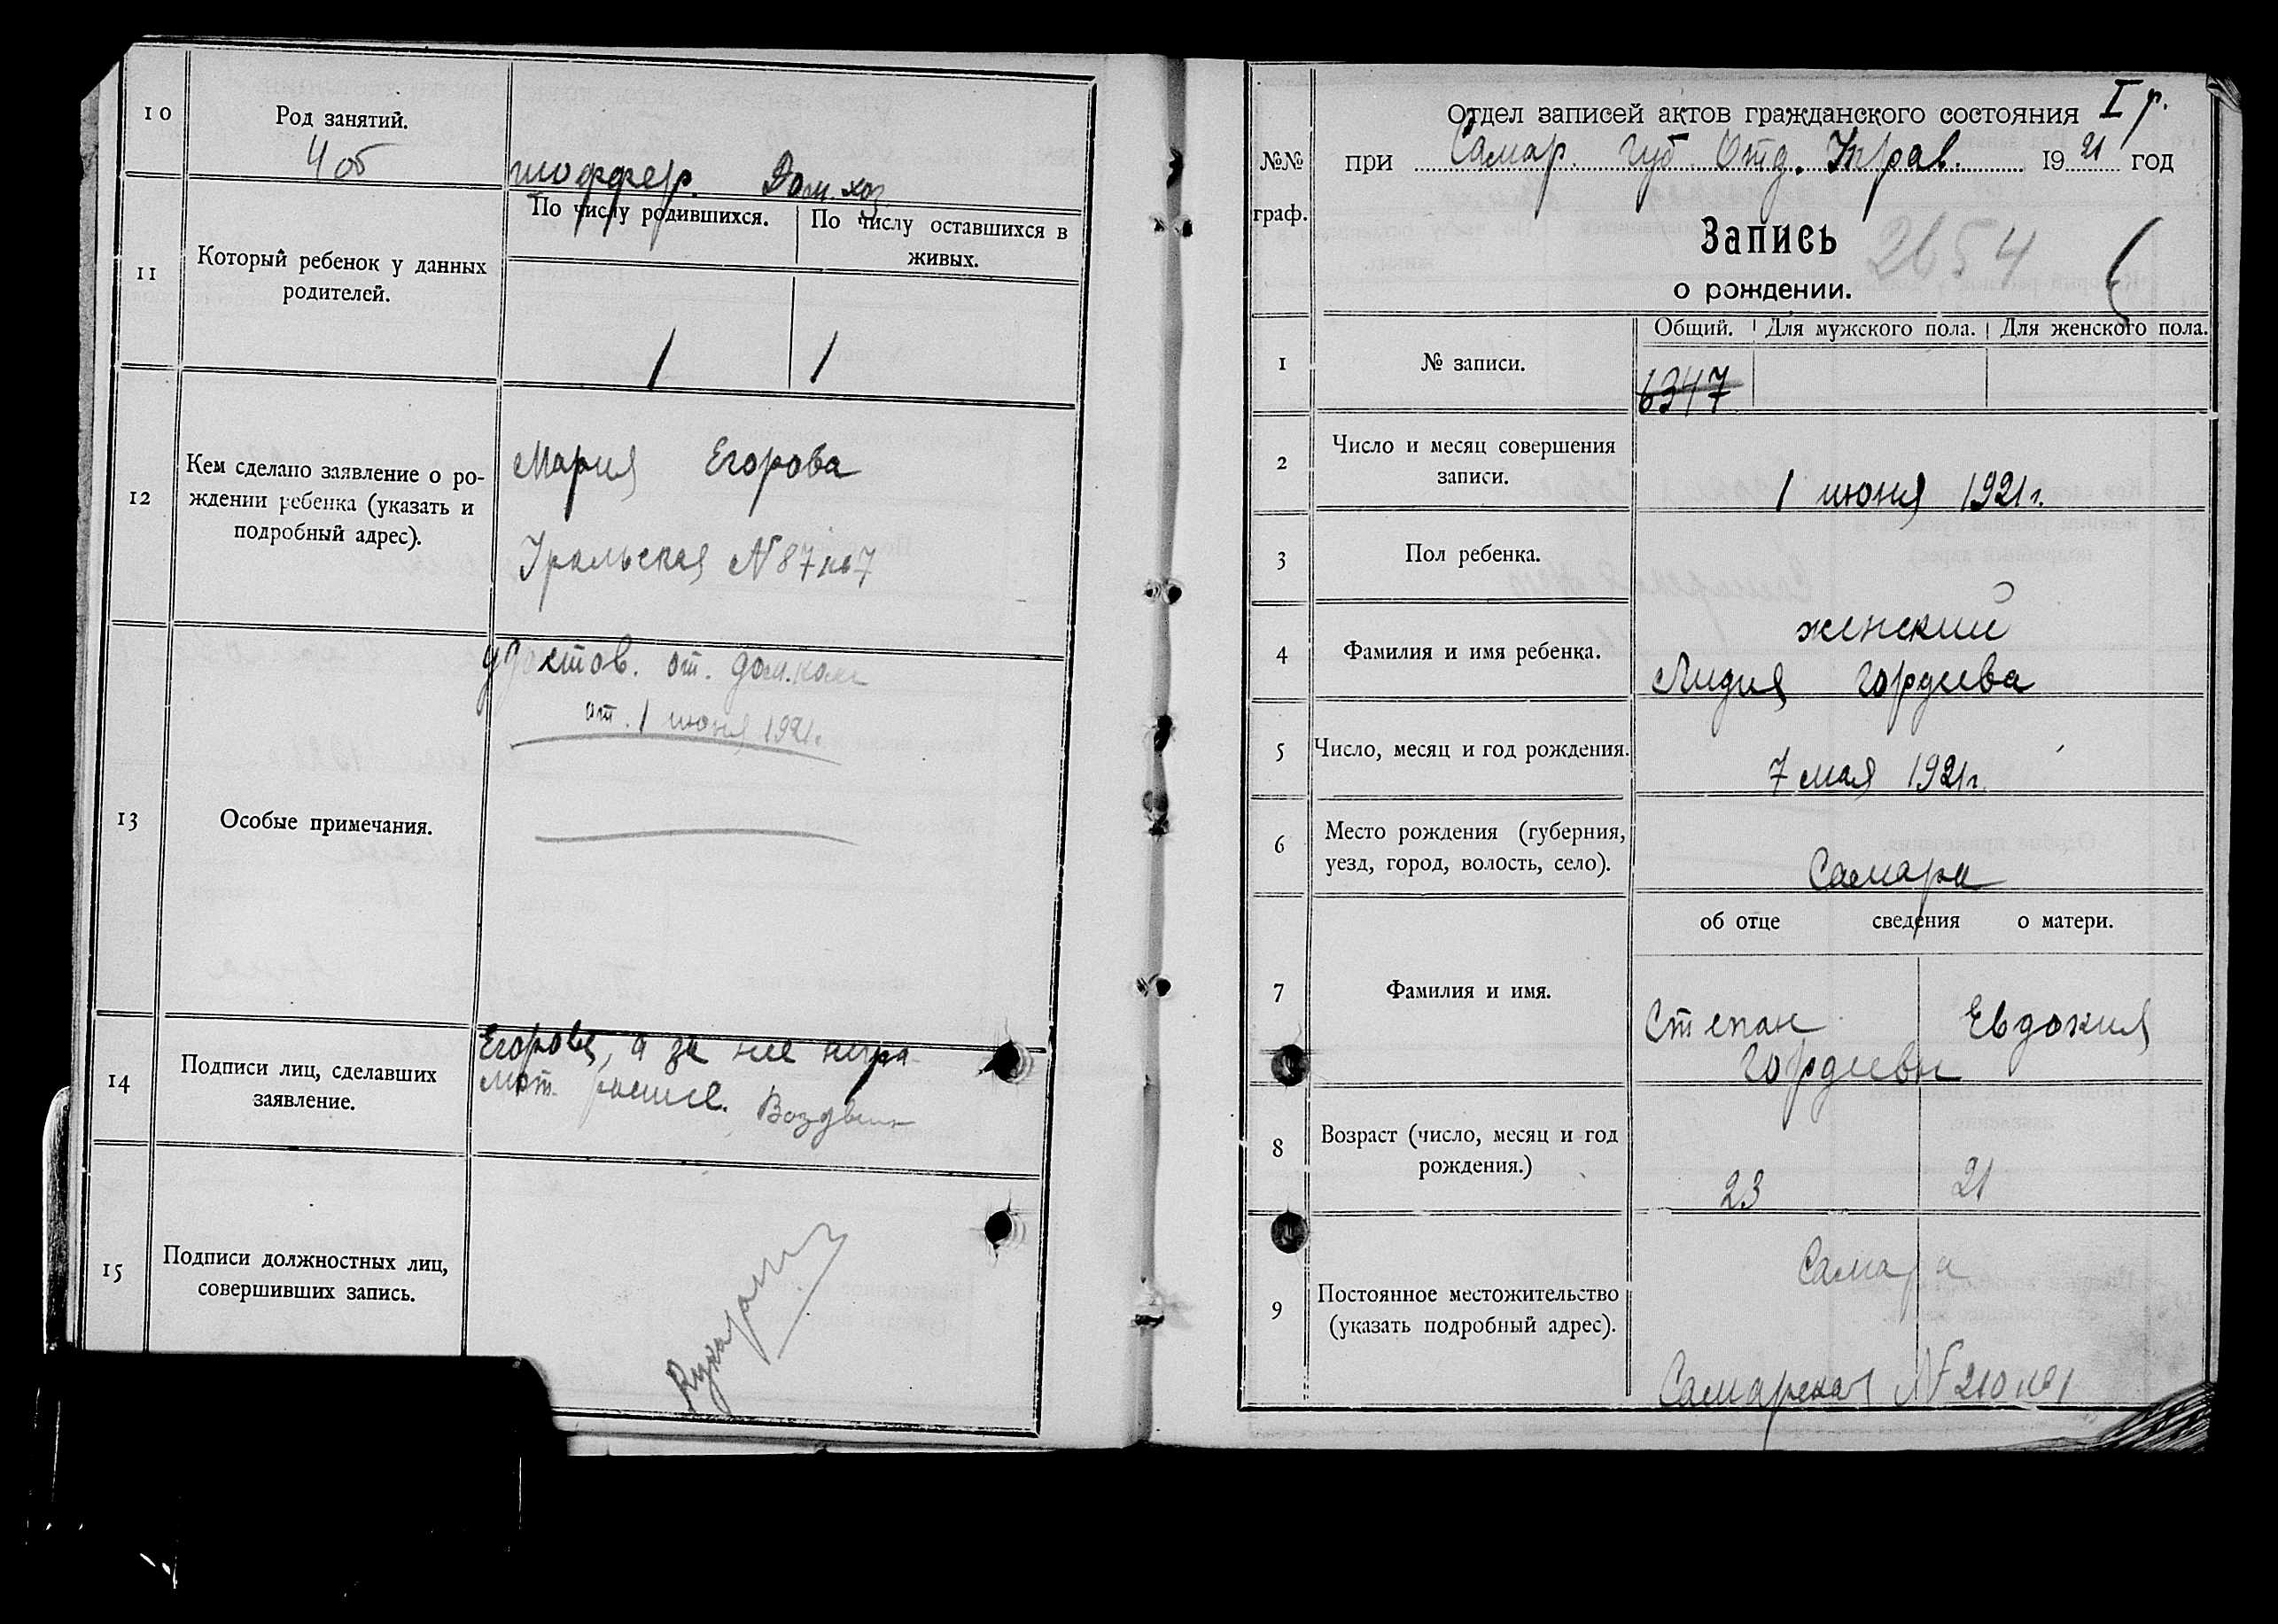 10
Род занятий.
4 об
шоффер. Дом. хоз.
11
Который ребенок у данных
родителей.
По числу родившихся.
По числу оставшихся в
живых.
1
1
12
Кем сделано заявление о ро-
ждении ребенка (указать и
подробный адрес).
Мария Егорова
Уральская № 87 кв 7
13
Особые примечания.
удостов. от. дом.ком
от. 1 июня 1921г.
14
Подписи лиц, сделавших
заявление.
Егорова, а за нее негра-
мот. распис.
15
Подписи должностных лиц,
совершивших запись.
I р.
Отдел записей актов гражданского состояния
№№
граф.
при Самар. Губ. Отд. Управ. 1921 год
Запись 2654
о рождении.
1
№ записи.
Общий.
Для мужского пола.
Для женского пола.
6347
2
Число и месяц совершения
записи.
1 июня 1921г.
3
Пол ребенка.
женский
4
Фамилия и имя ребенка.
Лидия Гордеева
5
Число, месяц и год рождения.
7 мая 1921г.
6
Место рождения (губерния,
уезд, город, волость, село).
Самара
об отце сведения о матери.
7
Фамилия и имя.
Степан Евдокия
Гордеевы
8
Возраст (число, месяц и год
рождения.)
23
21
9
Постоянное местожительство
(указать подробный адрес).
Самара
Самарская № 210 кв 1